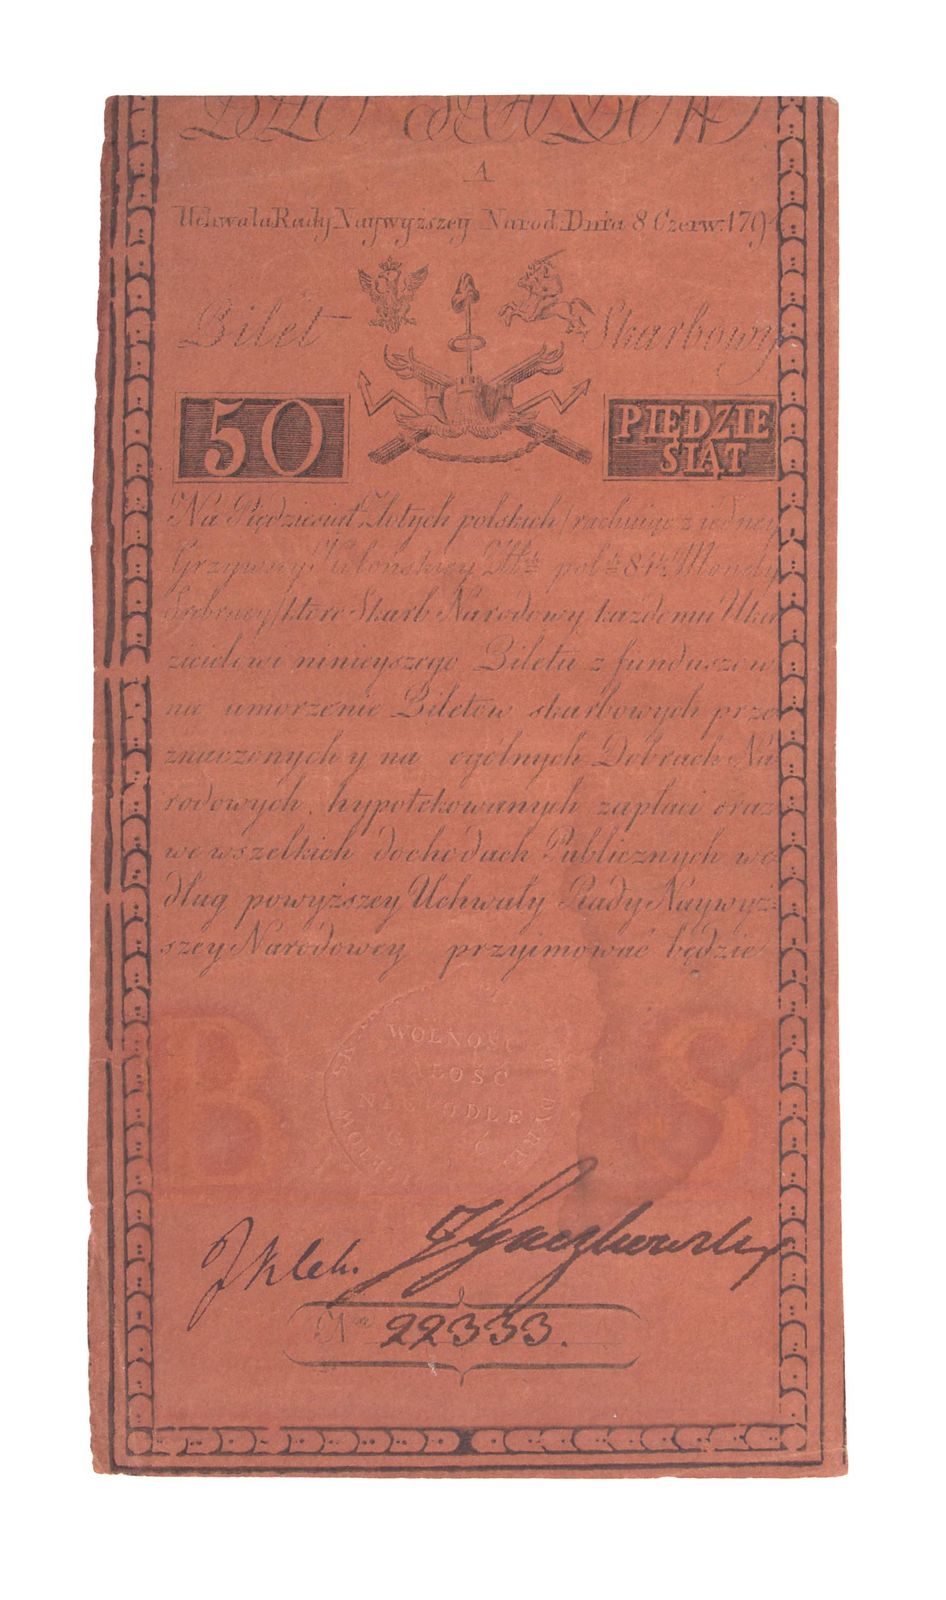 A
Uchwała Rady Naywyższey Narod. Dnia 8 Czerw. 179
Bilet Skarbowy
50 PIĘDZIE SIĄT
Na Pięździesiąt Złotych polskich /rachuiąc z iedney
Grzywny Kolonskiey Złł: pol: 84½ Monety
Srebrney/ które Skarb Narodowy każdemu Uka
zicielowi ninieyszego Biletu z funduszow
na umorzenie Biletow skarbowych prze
znaczonych y na ogólnych Dobrach Na
rodowych hypotekowanych zapłaci oraz
we wszelkich dochodach Publicznych we
dług powyższey Uchwały Rady Naywyż
szey Narodowey przyimować będzie
WOLNOSC
ŁOŚĆ
NIE ODLE
B S
No 22333.